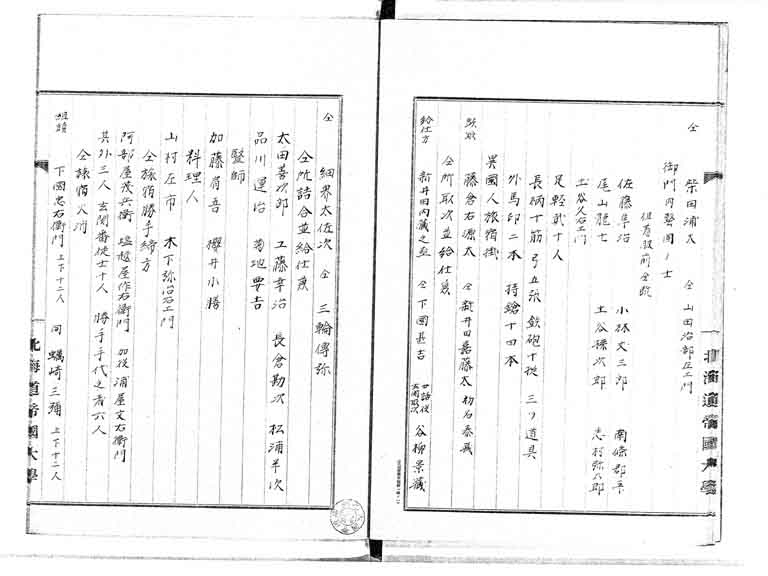 仝 柴田浦太 仝 山田治部左エ門
御門内警固ノ士
但着服前仝断
佐藤隼治 小林丈三郎 南條郡平
尾山龍七 土谷礒次郎 志村弥八郎
土谷久右エ門
足軽貳十人
長柄十筋 弓五張 鉄砲十挺 三ツ道具
外馬印二本 持鎗十四本
異國人旅宿掛
頭取 藤倉右源太 仝 新井田嘉藤太 杉石泰蔵
仝所取次並給仕兼
給仕方 新井田内蔵之丞 仝 下國甚吉 谷柳景蔵
仝 細界太佐次 仝 三輪傳弥
仝所詰合並給仕兼
太田善次郎 工藤幸治 長倉勘次 松浦半次
品川運治 菊地要吉
醫師
加藤肩吾 櫻井小膳
料理人
山村左市 木下弥治右エ門
仝旅宿勝手締方
阿部屋茂兵衛 塩越屋作右衛門 加役 浦屋文右衛門
其外二人 玄関番徒士十人 勝手手代之者六人
仝旅宿火消
組頭 下國忠右衛門 上下十二人 同 蠣崎三彌 上下十二人
北海道帝國大學
北海道帝國大學